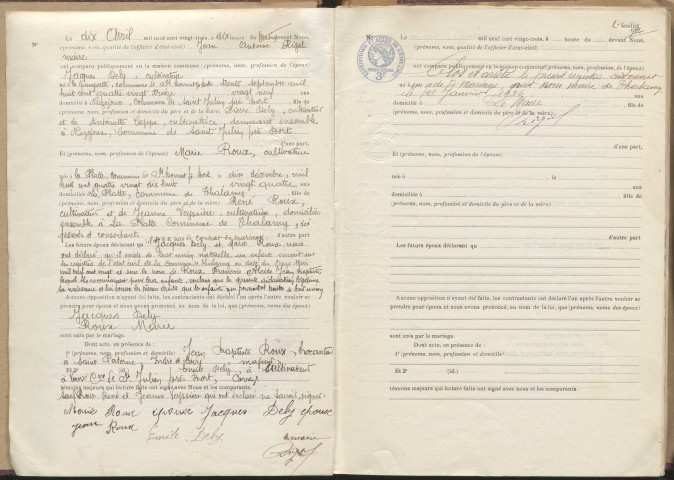 Le dix Avril mil neuf cent vingt-trois, à dix heures du devant Nous,
N°
(prénoms, nom, qualité de l'officier d'état-civil) Jean Antoine
maire
ont comparu publiquement en la maison commune (prénoms, nom, profession de l'époux)
Jacques Dely, cultivateur
né à commune de le trente septembre mil
huit cent quatre vingt treize vingt neuf ans
domicilié à commune de Saint Julien près Bort, fils de
(prénoms, nom, profession et domicile du père et de la mère) Pierre Dely, cultivateur
et de Antoinette cultivatrice, demeurant ensemble
à commune de Saint Julien près Bort
d'une part,
Et (prénoms, nom, profession de l'épouse) Marie Roux, cultivatrice
née à La Platte, commune de St Bonnet près Bort le dix décembre, mil
huit cent quatre vingt dix huit vingt quatre ans
domiciliée à La Platte, commune de Thalamy, fille de
(prénoms, nom, profession et domicile du père et de la mère) René Roux,
cultivateur et de Jeanne Veyssière, cultivatrice, domiciliés
ensemble à La Platte commune de Thalamy, ses
père et mère consentants
d'autre part
Les futurs époux déclarent qu'il n'y a pas de contrat de mariage
Jacques Dely et Marie Roux, nous
ont déclaré qu'il existe de leur union naturelle un enfant inscrit sur
les registres de l'état civil de la commune de en date du onze Mars
mil neuf cent vingt et sous le nom de Roux François
Aucune opposition n'ayant été faite, les contractants ont déclaré l'un après l'autre vouloir se
prendre pour époux et nous avons prononcé, au nom de la loi, que (prénoms, noms des époux)
Jacques Dely
Roux Marie
sont unis par le mariage.
Dont acte, en présence de :
1° (prénoms, nom, profession et domicile) Jean Baptiste Roux, brocanteur
à Saint Indre et Loire, majeur
Et 2° (id.) Emile Dely, cultivateur
à Cne de St Julien près Bort, Corrèze
témoins majeurs qui lecture faite ont signé avec Nous et les comparants
Sauf Roux René et Jeanne Veyssière qui ont déclaré ne savoir signer
Marie Roux épouse Jacques Dely époux
Jean Roux
Emile Dely
Le maire
2e feuillet
N° Le mil neuf cent vingt-trois, à heure du devant Nous,
(prénoms, nom, qualité de l'officier d'état-civil)
ont comparu publiquement en la maison commune (prénoms, nom, profession de l'époux)
Clos et arrêté le présent registre contenant
un acte de Mariage, par nous maire de Thalamy
le 1er Janvier 1924
ans
domicilié à fils de
Le Maire
(prénoms, nom, profession et domicile du père et de la mère)
d'une part,
Et (prénoms, nom, profession de l'épouse)
née à , le
ans
domiciliée à , fille de
(prénoms, nom, profession et domicile du père et de la mère)
d'autre part
Les futurs époux déclarent qu
Aucune opposition n'ayant été faite, les contractants ont déclaré l'un après l'autre vouloir se
prendre pour époux et nous avons prononcé, au nom de la loi, que (prénoms, noms des époux)
sont unis par le mariage.
Dont acte, en présence de :
1° (prénoms, nom, profession et domicile)
Et 2° (id.)
témoins majeurs qui lecture faite ont signé avec Nous et les comparants